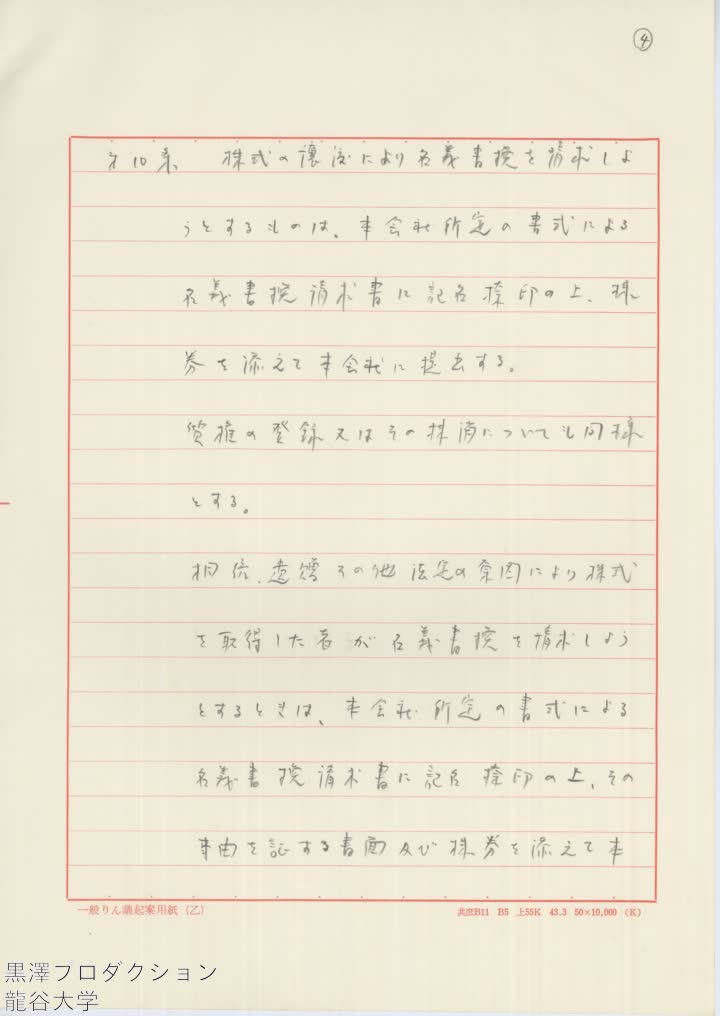 ④
第10条 株式の譲渡により名義書換を請求しよ
うとするものは、本会社所定の書式による
名義書換請求書に記名捺印の上、株
券を添えて本会社に提出する。
質権の登録又はその抹消についても同様
とする。
相続、遺贈その他法定の原因により株式
を取得した者が名義書換を請求しよう
とするときは、本会社所定の書式による
名義書換請求書に記名捺印の上、その
事由を証する書面及び株券を添えて本
一般りん議起案用紙(乙)
共庶B11 B5 上55K 43.3 50×10,000 (K)
黒澤プロダクション
龍谷大学